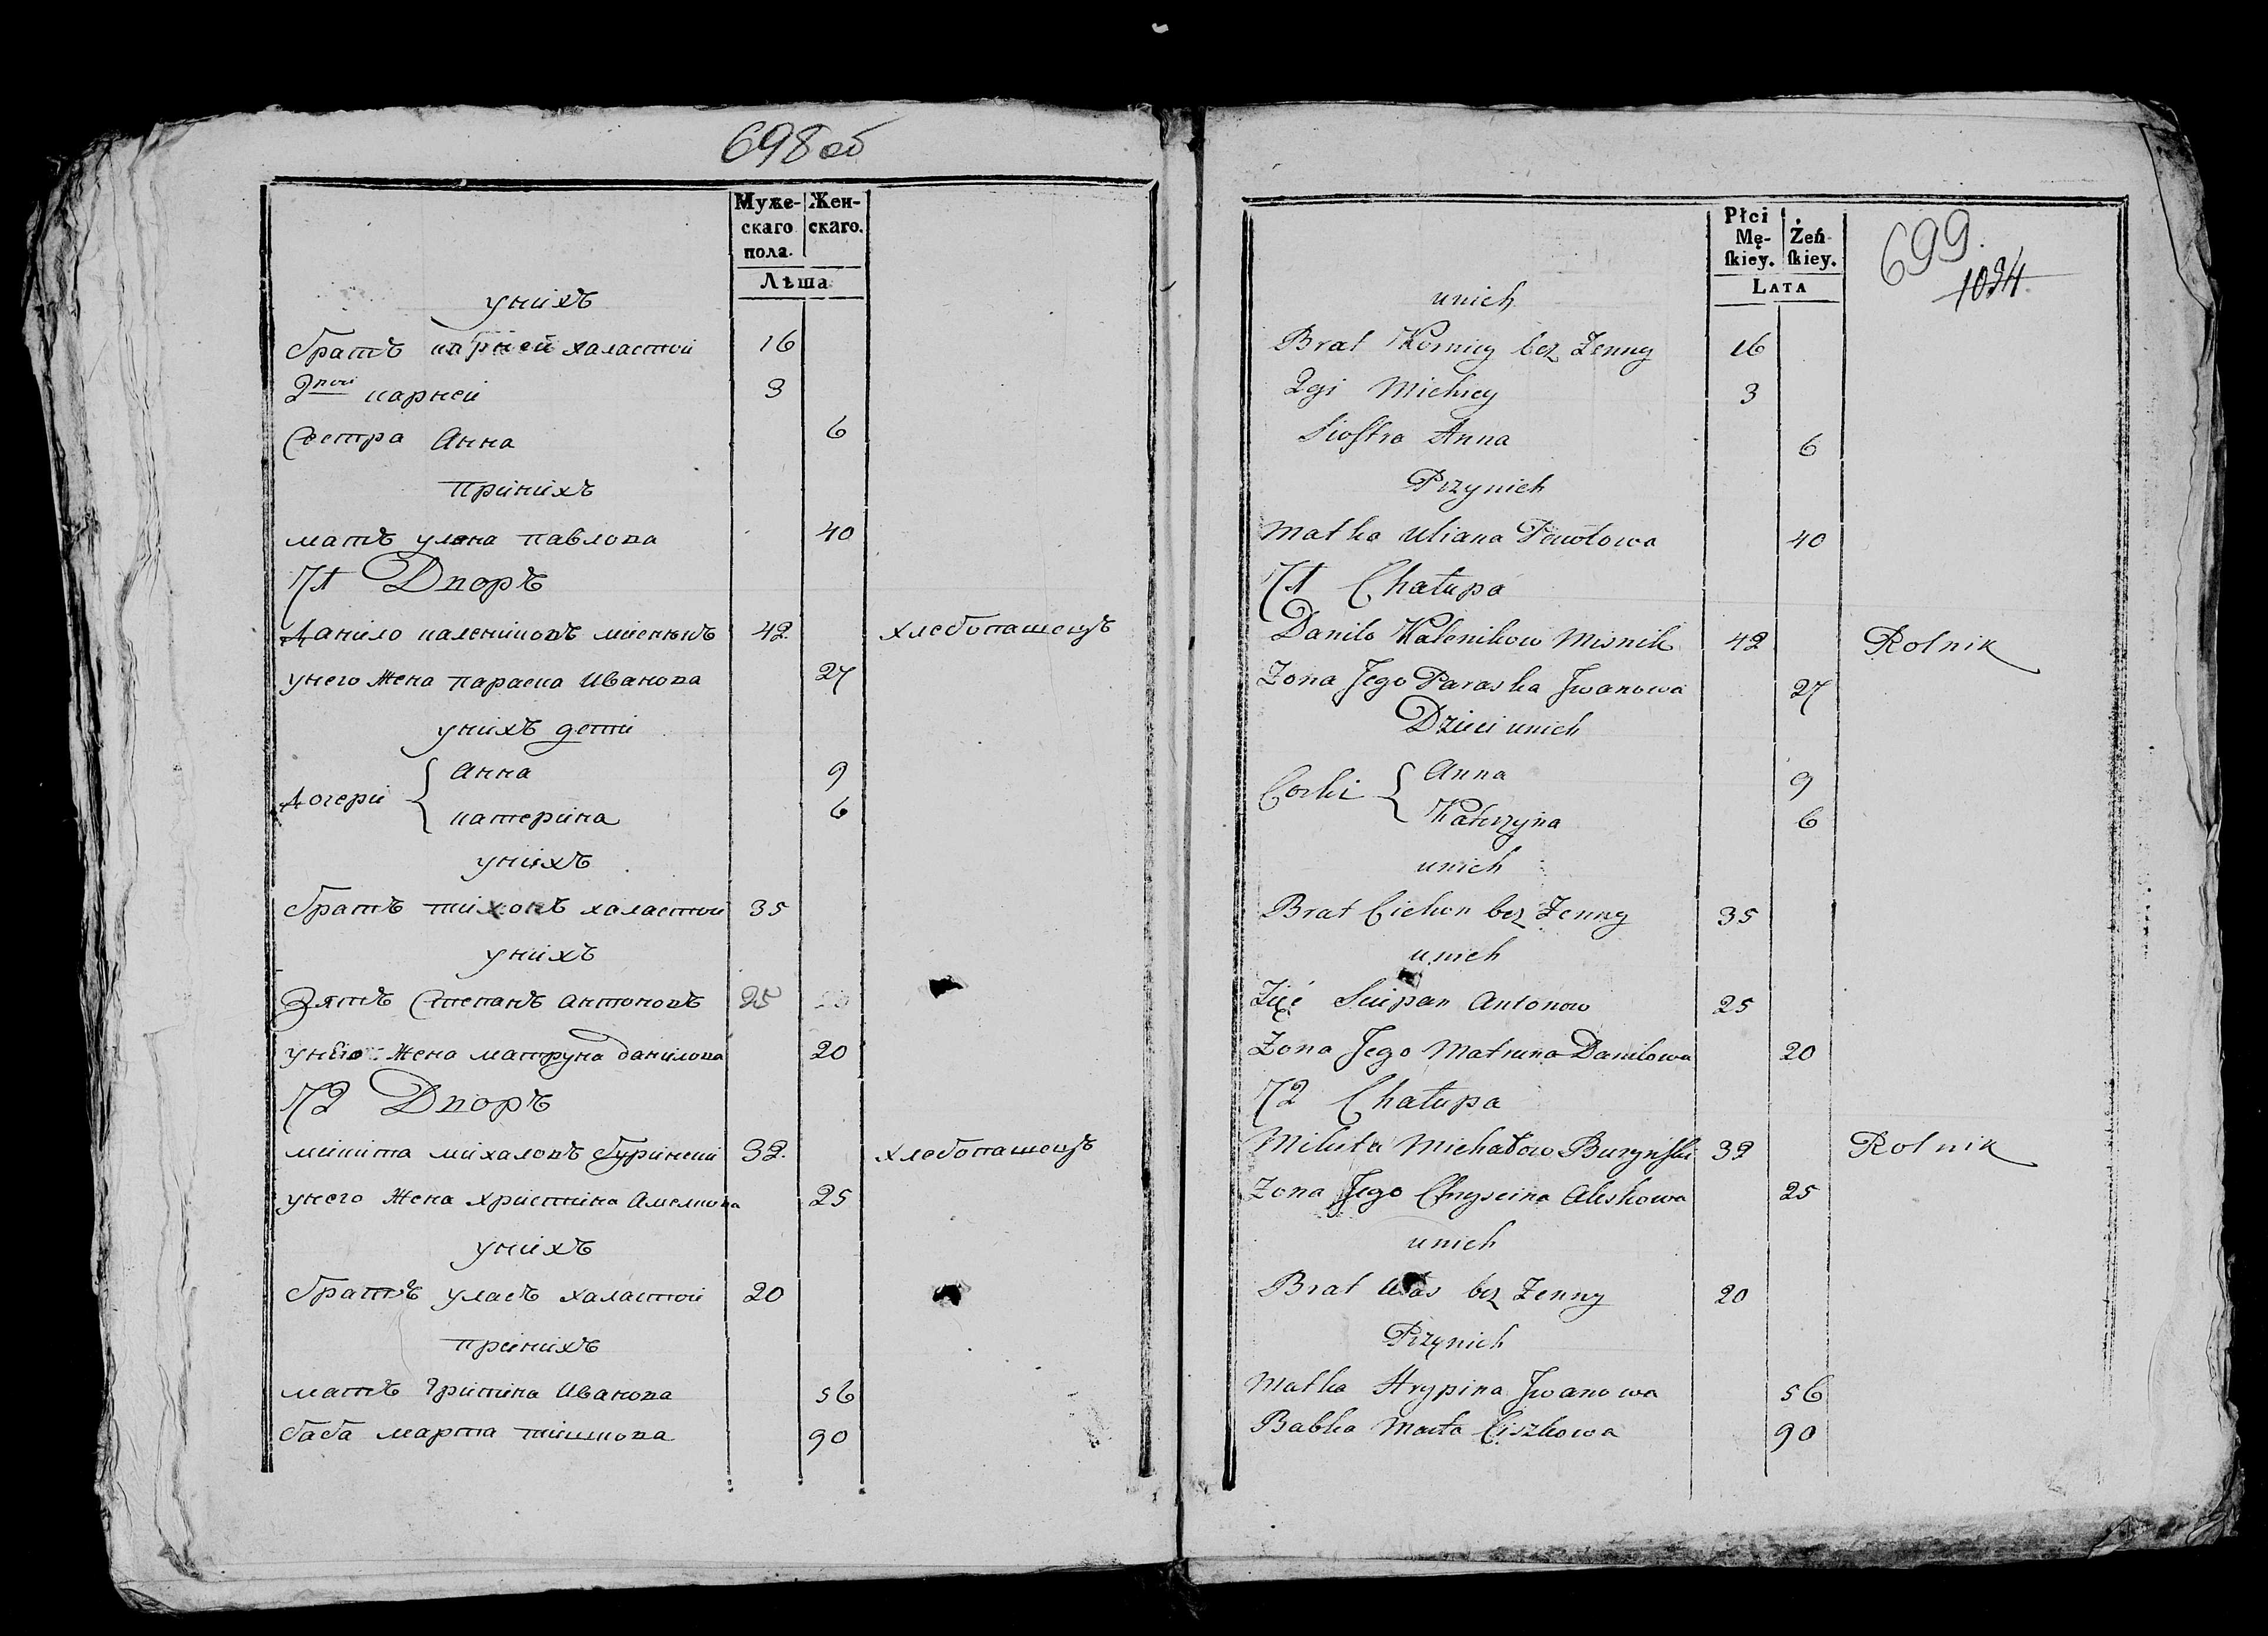 698 об
Муже- Жен-
скаго скаго.
пола.
Лѣта
унихъ
братъ карней халастой 16
2той карней 3
Сестра Анна 6
принихъ
матъ улена павлова 40
71 Дворъ
Данило каленіковъ міснікъ 42 хлебопашецъ
унего Жена параска Иванова 27
унихъ дети
Анна 9
Дочери {
катерина 6
унихъ
братъ тихонъ халастой 35
унихъ
Зятъ Степанъ антоновъ 25
унего Жена матруна данилова 20
72 Дворъ
микита михаловъ буринский 32 хлебопашецъ
унего Жена христина Амелкова 25
унихъ
братъ уласъ халастой 20
принихъ
матъ грипина Иванова 56
баба марта тишкова 90
Płci Żeń
Mę- skiey.
skiey.
LATA
699.
1094
unich
Brat Korniey bez Zenny 16
2gi Michiey 3
Siostra Anna 6
Przynich
Matka Uliana Pawłowa 40
71 Chałupa
Danilo Kalenikow Misnik 42 Rolnik
Zona Jego Paraska Jwanowa 27
Dzieci unich
Anna 9
Corki {
Katerzyna 6
unich
Brat Cichon bez Zenny 35
unich
Zięć Sciepan Antonow 25
Zona Jego Matruna Danilowa 20
72 Chałupa
Mikita Michałow Burynski 32 Rolnik
Zona Jego Chryscina Aleskowa 25
unich
Brat Ułas bez Zenny 20
Przynich
Matka Hrypina Jwanowa 56
Babka Marta Ciszkowa 90